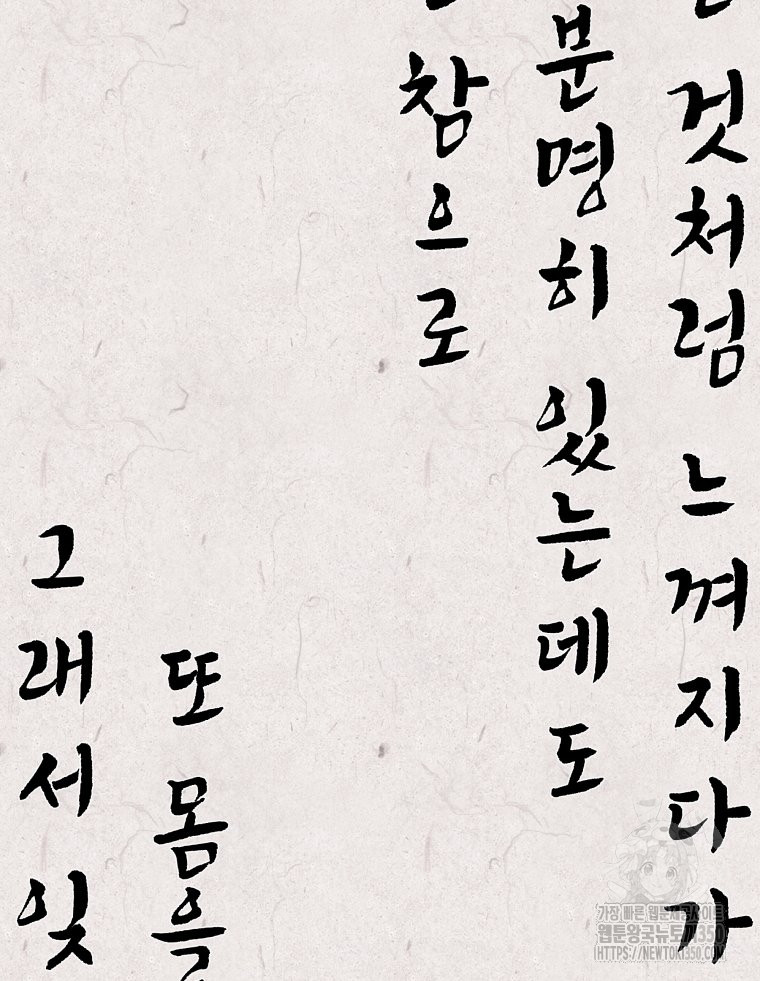 것처럼 느껴지다가
분명히 있는데도
참으로
또 몸을
그래서 잊
가장 빠른 웹툰제공사이트
웹툰왕국뉴토끼350
HTTPS://NEWTOKI350.COM